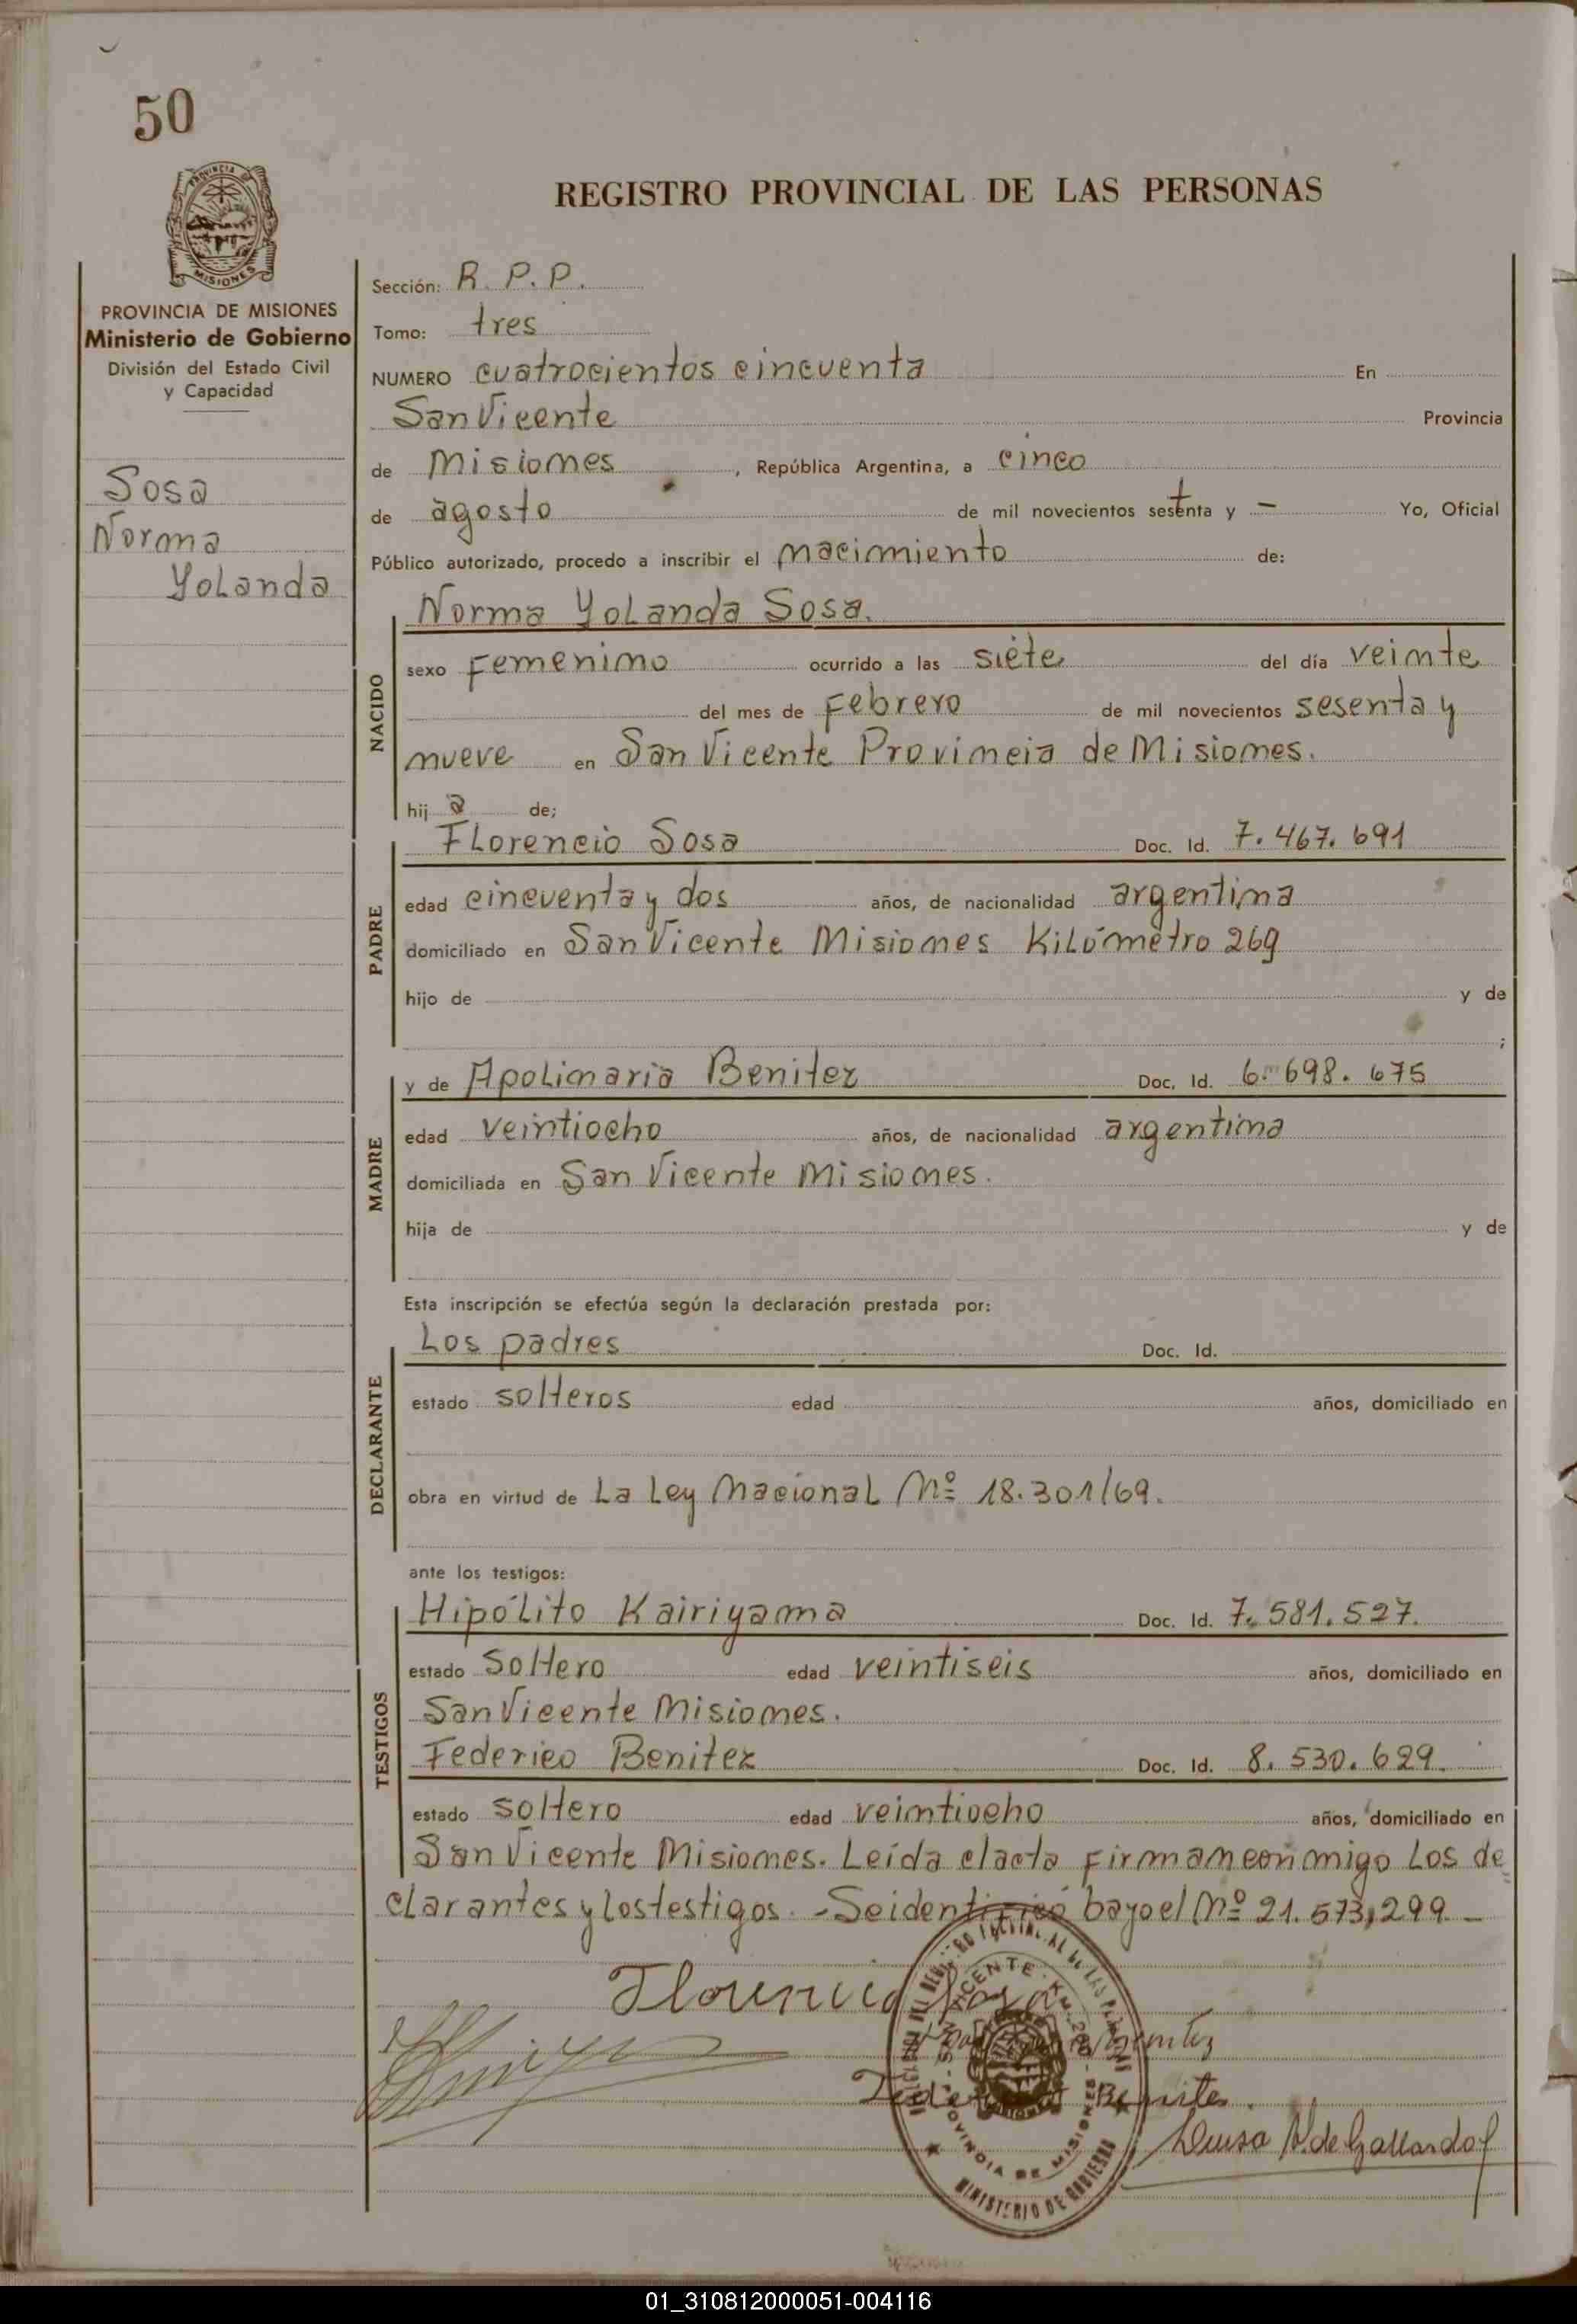 50
PROVINCIA DE
MISIONES
REGISTRO PROVINCIAL DE LAS PERSONAS
PROVINCIA DE MISIONES
Ministerio de Gobierno
División del Estado Civil
y Capacidad
Sosa
Norma
Yolanda
Sección: R. P. P.
Tomo: tres
NUMERO cuatrocientos cincuenta En
San Vicente Provincia
de Misiones, República Argentina, a cinco
de agosto de mil novecientos setenta y — Yo, Oficial
Público autorizado, procedo a inscribir el nacimiento de:
NACIDO
Norma Yolanda Sosa.
sexo Femenino ocurrido a las siete del día veinte
del mes de Febrero de mil novecientos sesenta y
nueve en San Vicente Provincia de Misiones.
hij a de;
PADRE
Florencio Sosa Doc. Id. 7.467.691
edad cincuenta y dos años, de nacionalidad argentina
domiciliado en San Vicente Misiones Kilómetro 269
hijo de y de
;
MADRE
y de Apolinaria Benitez Doc. Id. 6.698.675
edad veintiocho años, de nacionalidad argentina
domiciliada en San Vicente Misiones.
hija de y de
Esta inscripción se efectúa según la declaración prestada por:
DECLARANTE
Los padres Doc. Id.
estado solteros edad años, domiciliado en
obra en virtud de La Ley Nacional Nº 18.301/69.
ante los testigos:
TESTIGOS
Hipólito Kairiyama Doc. Id. 7.581.527.
estado Soltero edad veintiseis años, domiciliado en
San Vicente Misiones.
Federico Benitez Doc. Id. 8.530.629.
estado soltero edad veintiocho años, domiciliado en
San Vicente Misiones. Leída el acta Firman conmigo Los de
clarantes y los testigos. - Se identificó bayo el Nº 21.573,299 -
Florencio Sosa
Benitez
Benites.
Luisa V. de Gallardo
SAN VICENTE - KM. 269 -
PROVINCIA DE MISIONES
MINISTERIO DE GOBIERNO
01_310812000051-004116